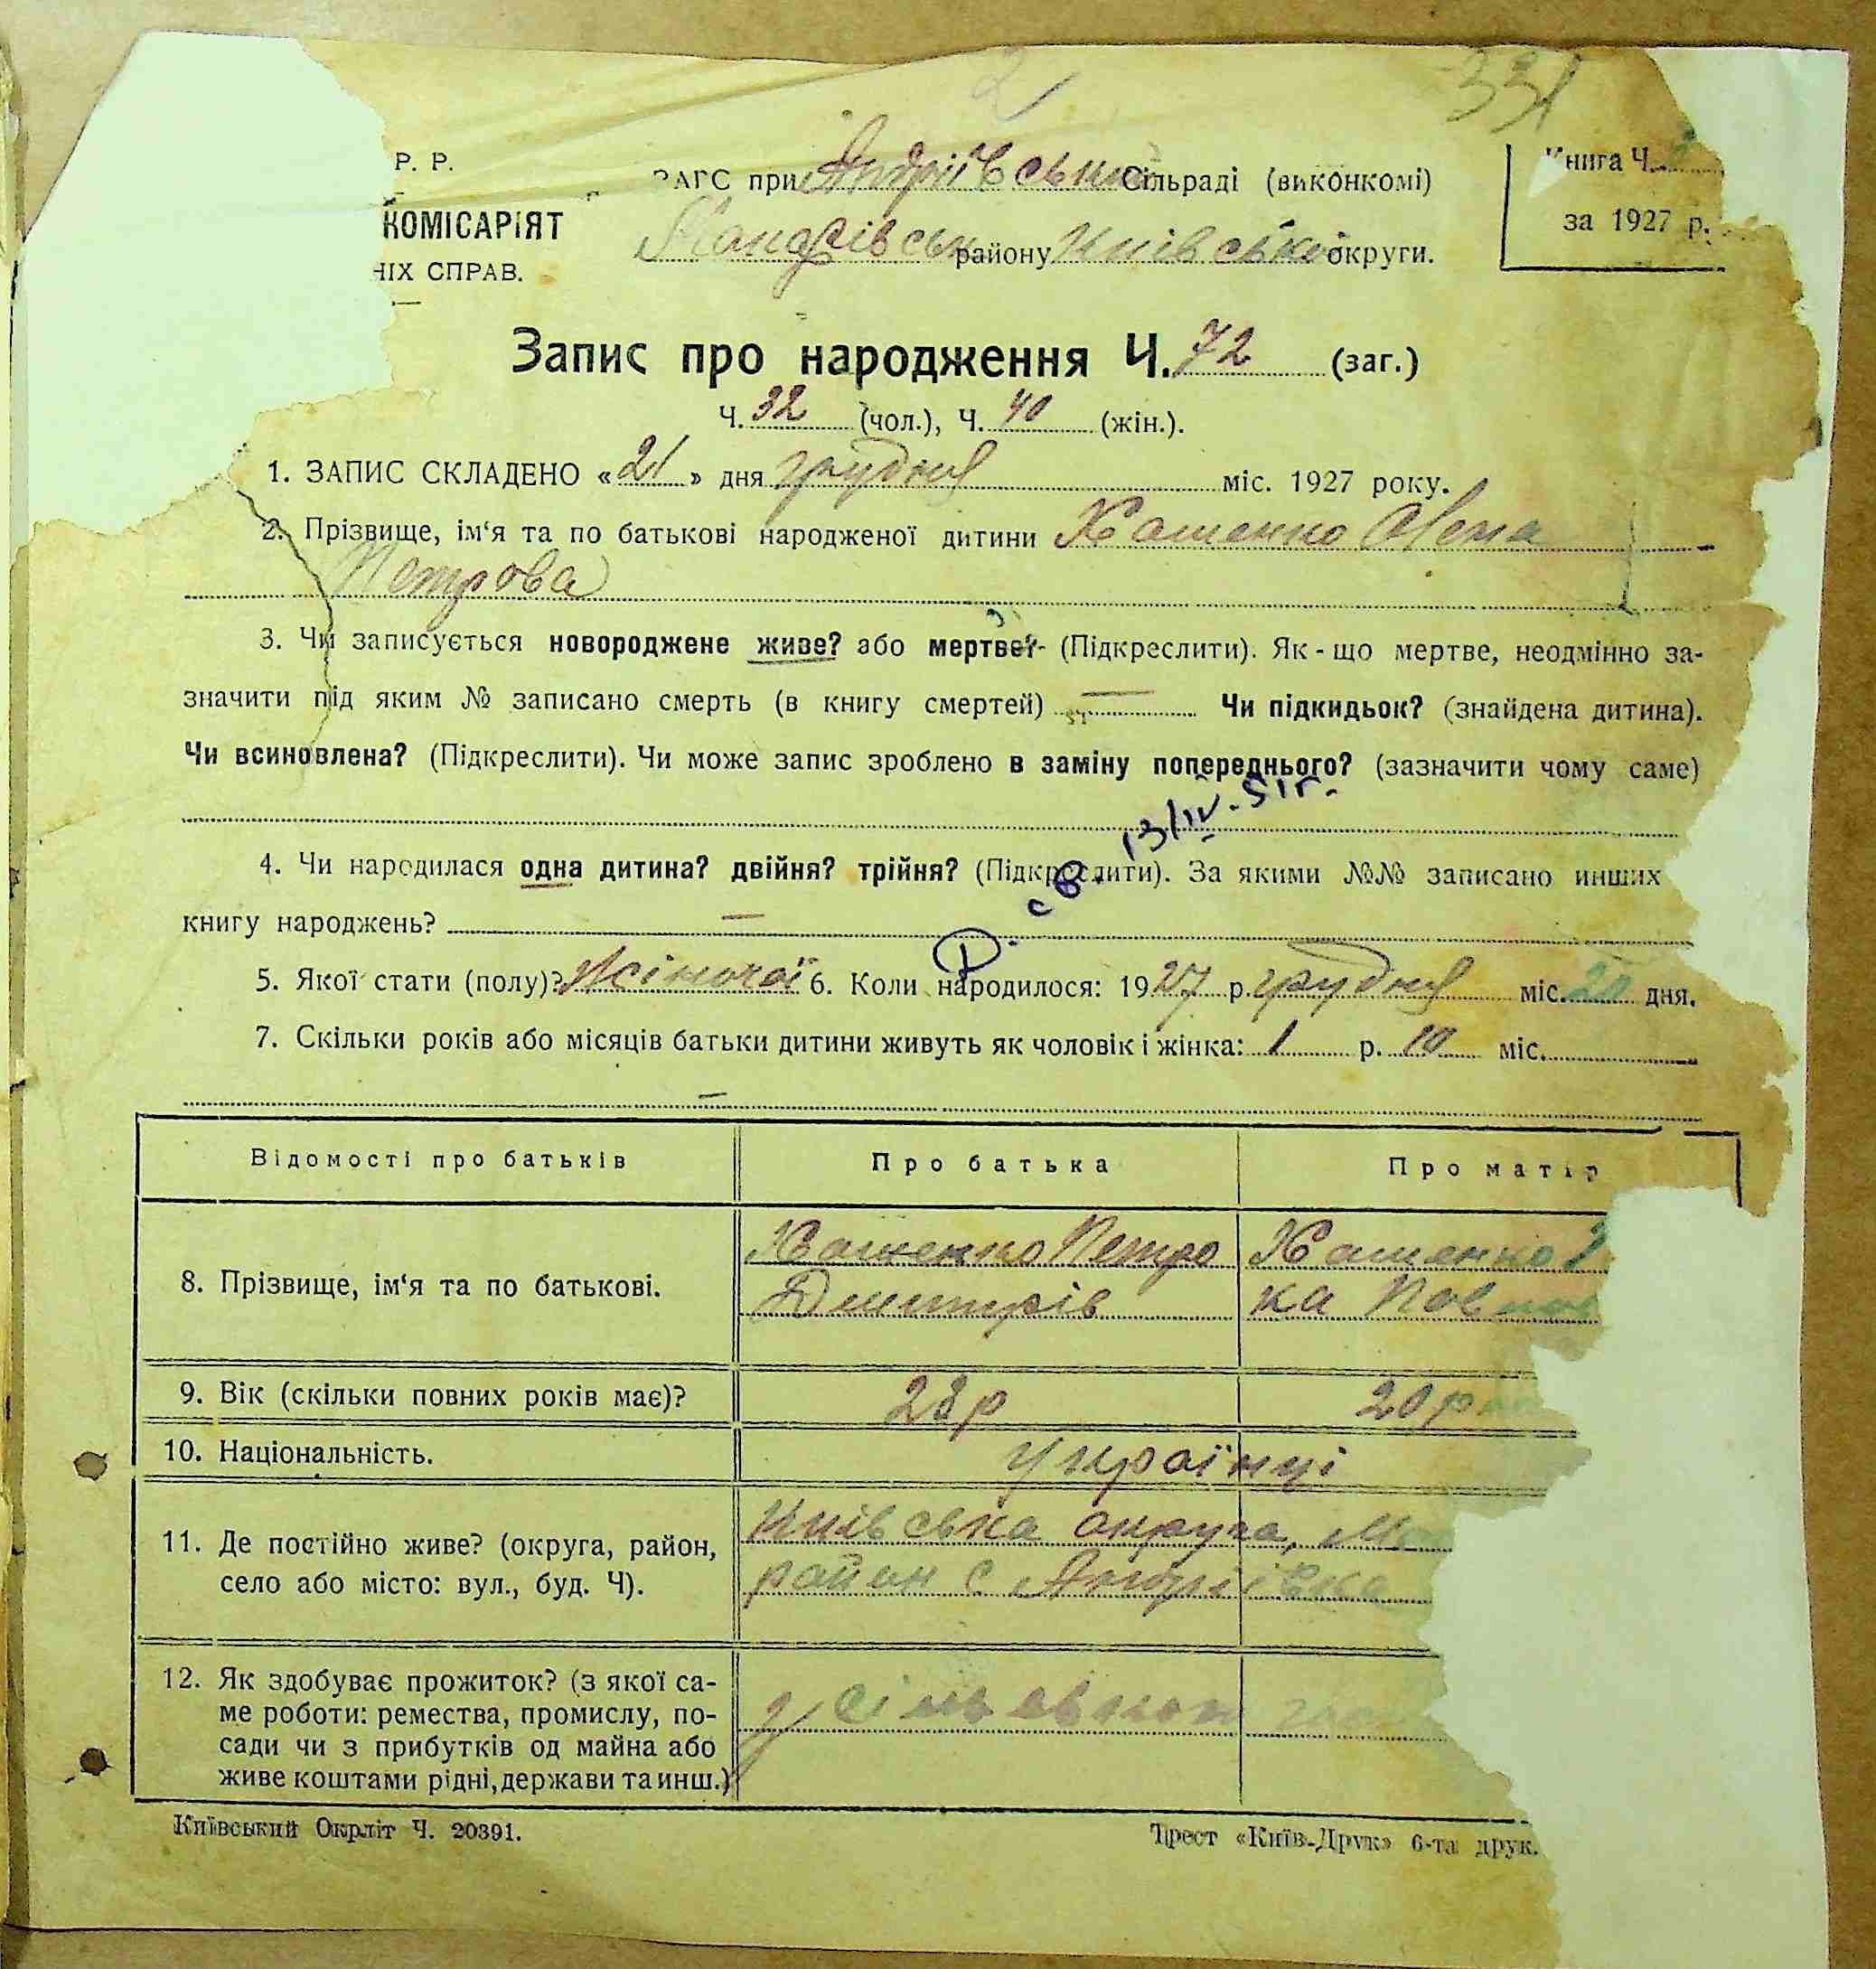 331
Р. Р.
ЗАГС при Андріївській Сільраді (виконкомі)
Книга Ч.
КОМІСАРІЯТ
району Київської округи.
за 1927 р.
НІХ СПРАВ.
Запис про народження Ч. 72 (заг.)
Ч. 32 (чол.), Ч. 40 (жін.).
1. ЗАПИС СКЛАДЕНО «21» дня грудня міс. 1927 року.
2. Прізвище, ім‘я та по батькові народженої дитини Хашенко Олена
Петрова
3. Чи записується новороджене живе? або мертве? (Підкреслити). Як-що мертве, неодмінно за-
значити під яким № записано смерть (в книгу смертей) — Чи підкидьок? (знайдена дитина).
Чи всиновлена? (Підкреслити). Чи може запис зроблено в заміну попереднього? (зазначити чому саме)
св. 13/IV-51г.
4. Чи народилася одна дитина? двійня? трійня? (Підкреслити). За якими №№ записано инших
книгу народжень? —
5. Якої стати (полу)? Жіночої 6. Коли народилося: 1927 р. грудня міс. 20 дня.
7. Скільки років або місяців батьки дитини живуть як чоловік і жінка: 1 р. 10 міс.
—
Відомості про батьків Про батька Про матір
8. Прізвище, ім‘я та по батькові.
Хашенко Петро
Дмитрів
Хашенко
ка
9. Вік (скільки повних років має)? 23р 20р
10. Національність. Українці
11. Де постійно живе? (округа, район,
село або місто: вул., буд. Ч).
Київська округа, М
район с Андріївка
12. Як здобуває прожиток? (з якої са-
ме роботи: ремества, промислу, по-
сади чи з прибутків од майна або
живе коштами рідні, держави та инш.)
Київський Окрліт Ч. 20391.
Трест «Київ-Друк» 6-та друк.